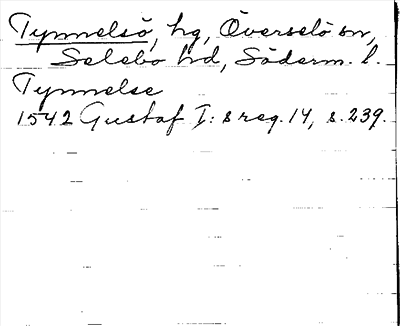 Tynnelsö, hg, Överselö sn,
Selebo hd, Söderm. l.
Tynnelse
1542 Gustaf I: s reg. 14, s. 239.